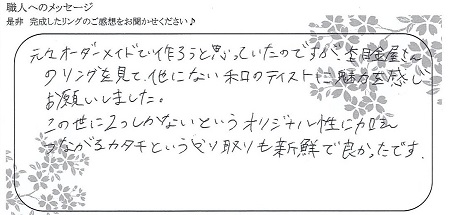 職人へのメッセージ
是非 完成したリングのご感想をお聞かせください♪
元々オーダーメイドで作ろうと思っていたのですが、杢目金屋さん
のリングを見て、他にない和のテイストに魅力を感じ
お願いしました。
この世に2つしかないというオリジナル性に加え
つながるカタチという やり取りも新鮮で良かったです.